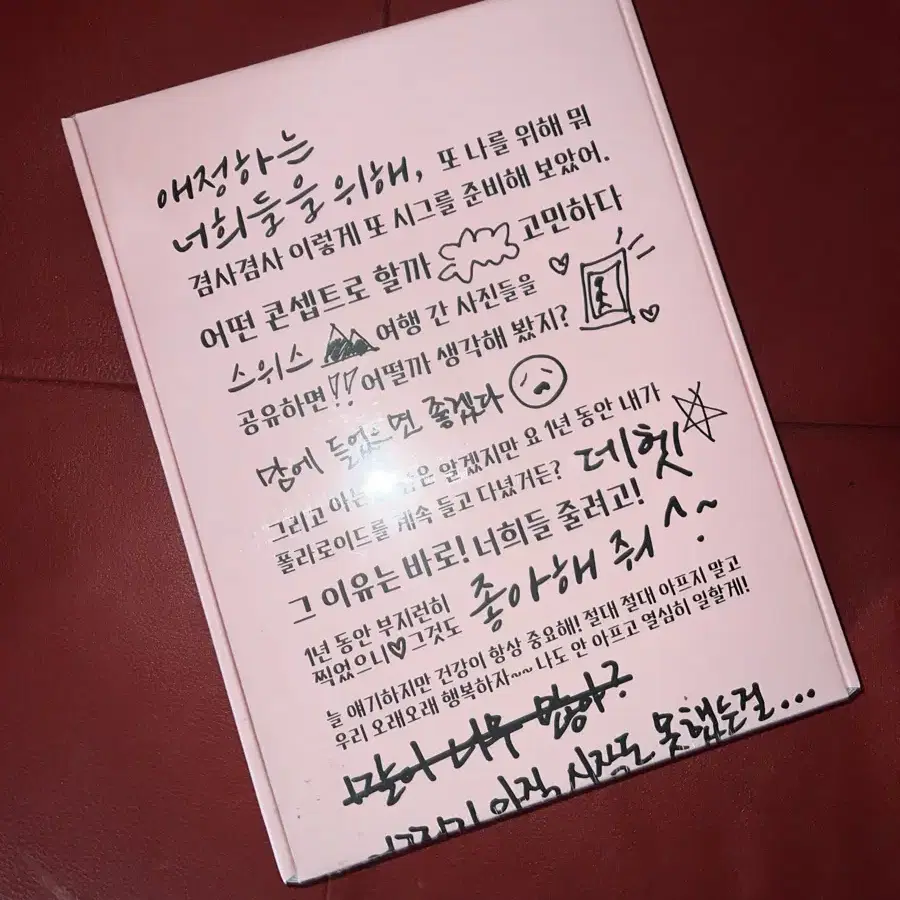 애정하는
너희들을 위해, 또 나를 위해 뭐
겸사겸사 이렇게 또 시그를 준비해 보았어.
어떤 콘셉트로 할까 고민하다
스위스 여행 간 사진들을
공유하면!! 어떨까 생각해 봤지?
맘에 들었으면 좋겠다
그리고 아는 알겠지만 요 1년 동안 내가
폴라로이드를 계속 들고 다녔거든? 데헷
그 이유는 바로! 너희들 줄려고!
1년 동안 부지런히
찍었으니♥그것도 좋아해 줘 ^~
늘 얘기하지만 건강이 항상 중요해! 절대 절대 아프지 말고
우리 오래오래 행복하자~~ 나도 안 아프고 열심히 일할게!
말이 너무 많아?
아직 시작도 못했는걸...